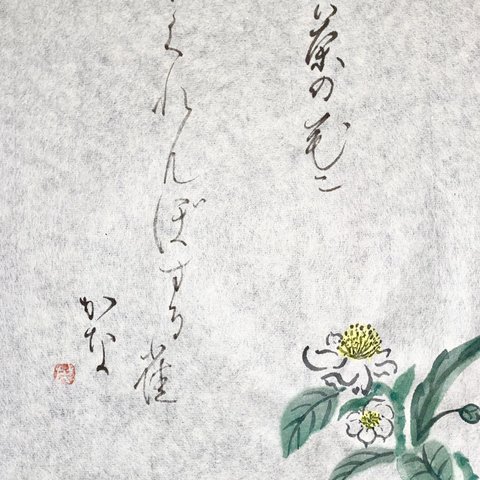 茶の花に
くれんぼする雀
かな